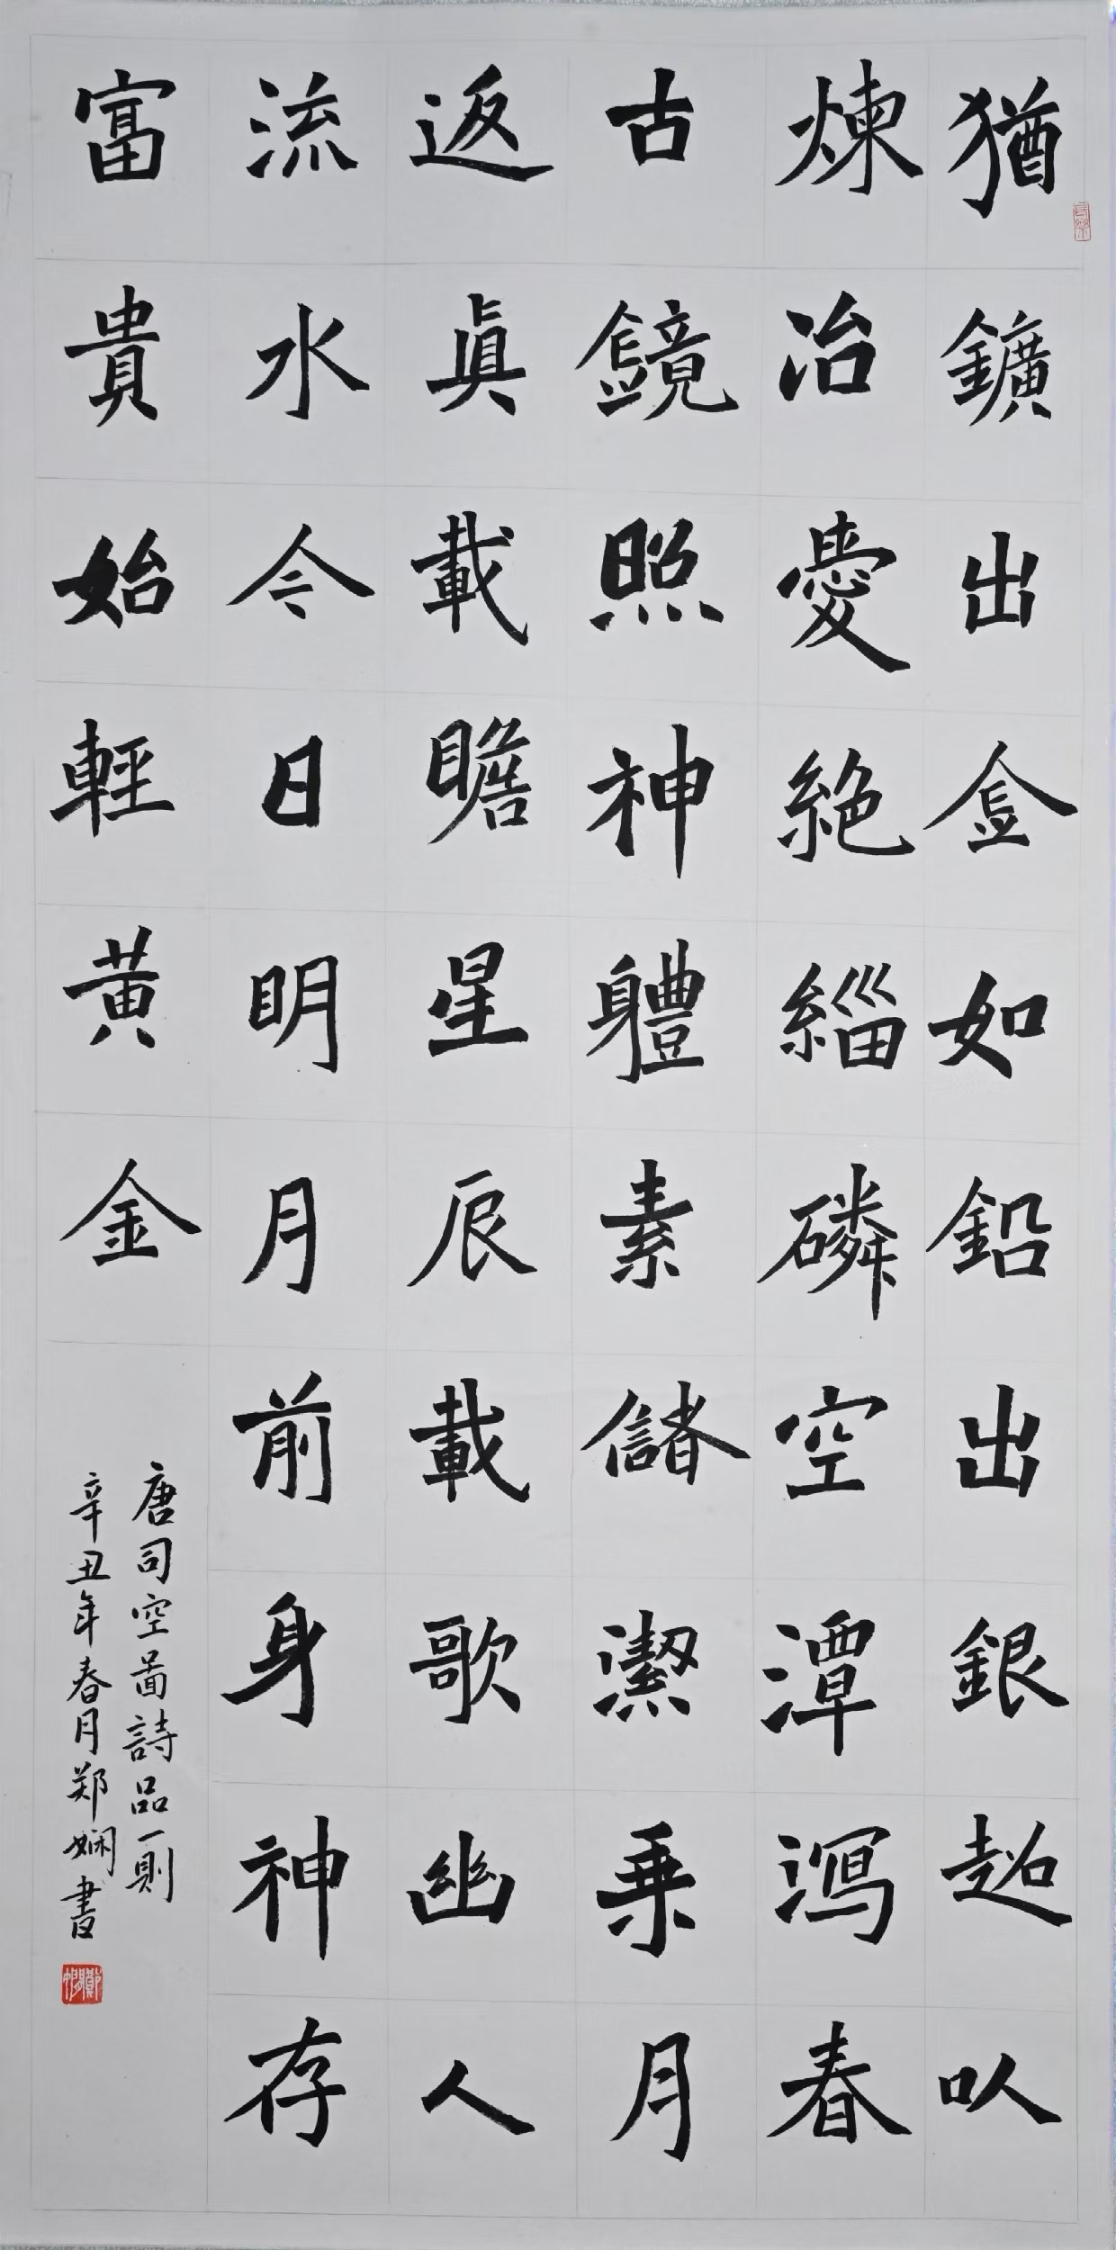 猶鑛出金如鉛出銀超㕥
煉冶愛絶緇磷空潭瀉春
古鏡照神軆素儲潔乗月
返眞載瞻星辰載歌幽人
流水今日明月前身神存
富貴始輕黄金
唐司空啚詩品一則
辛丑年春月郑娴書